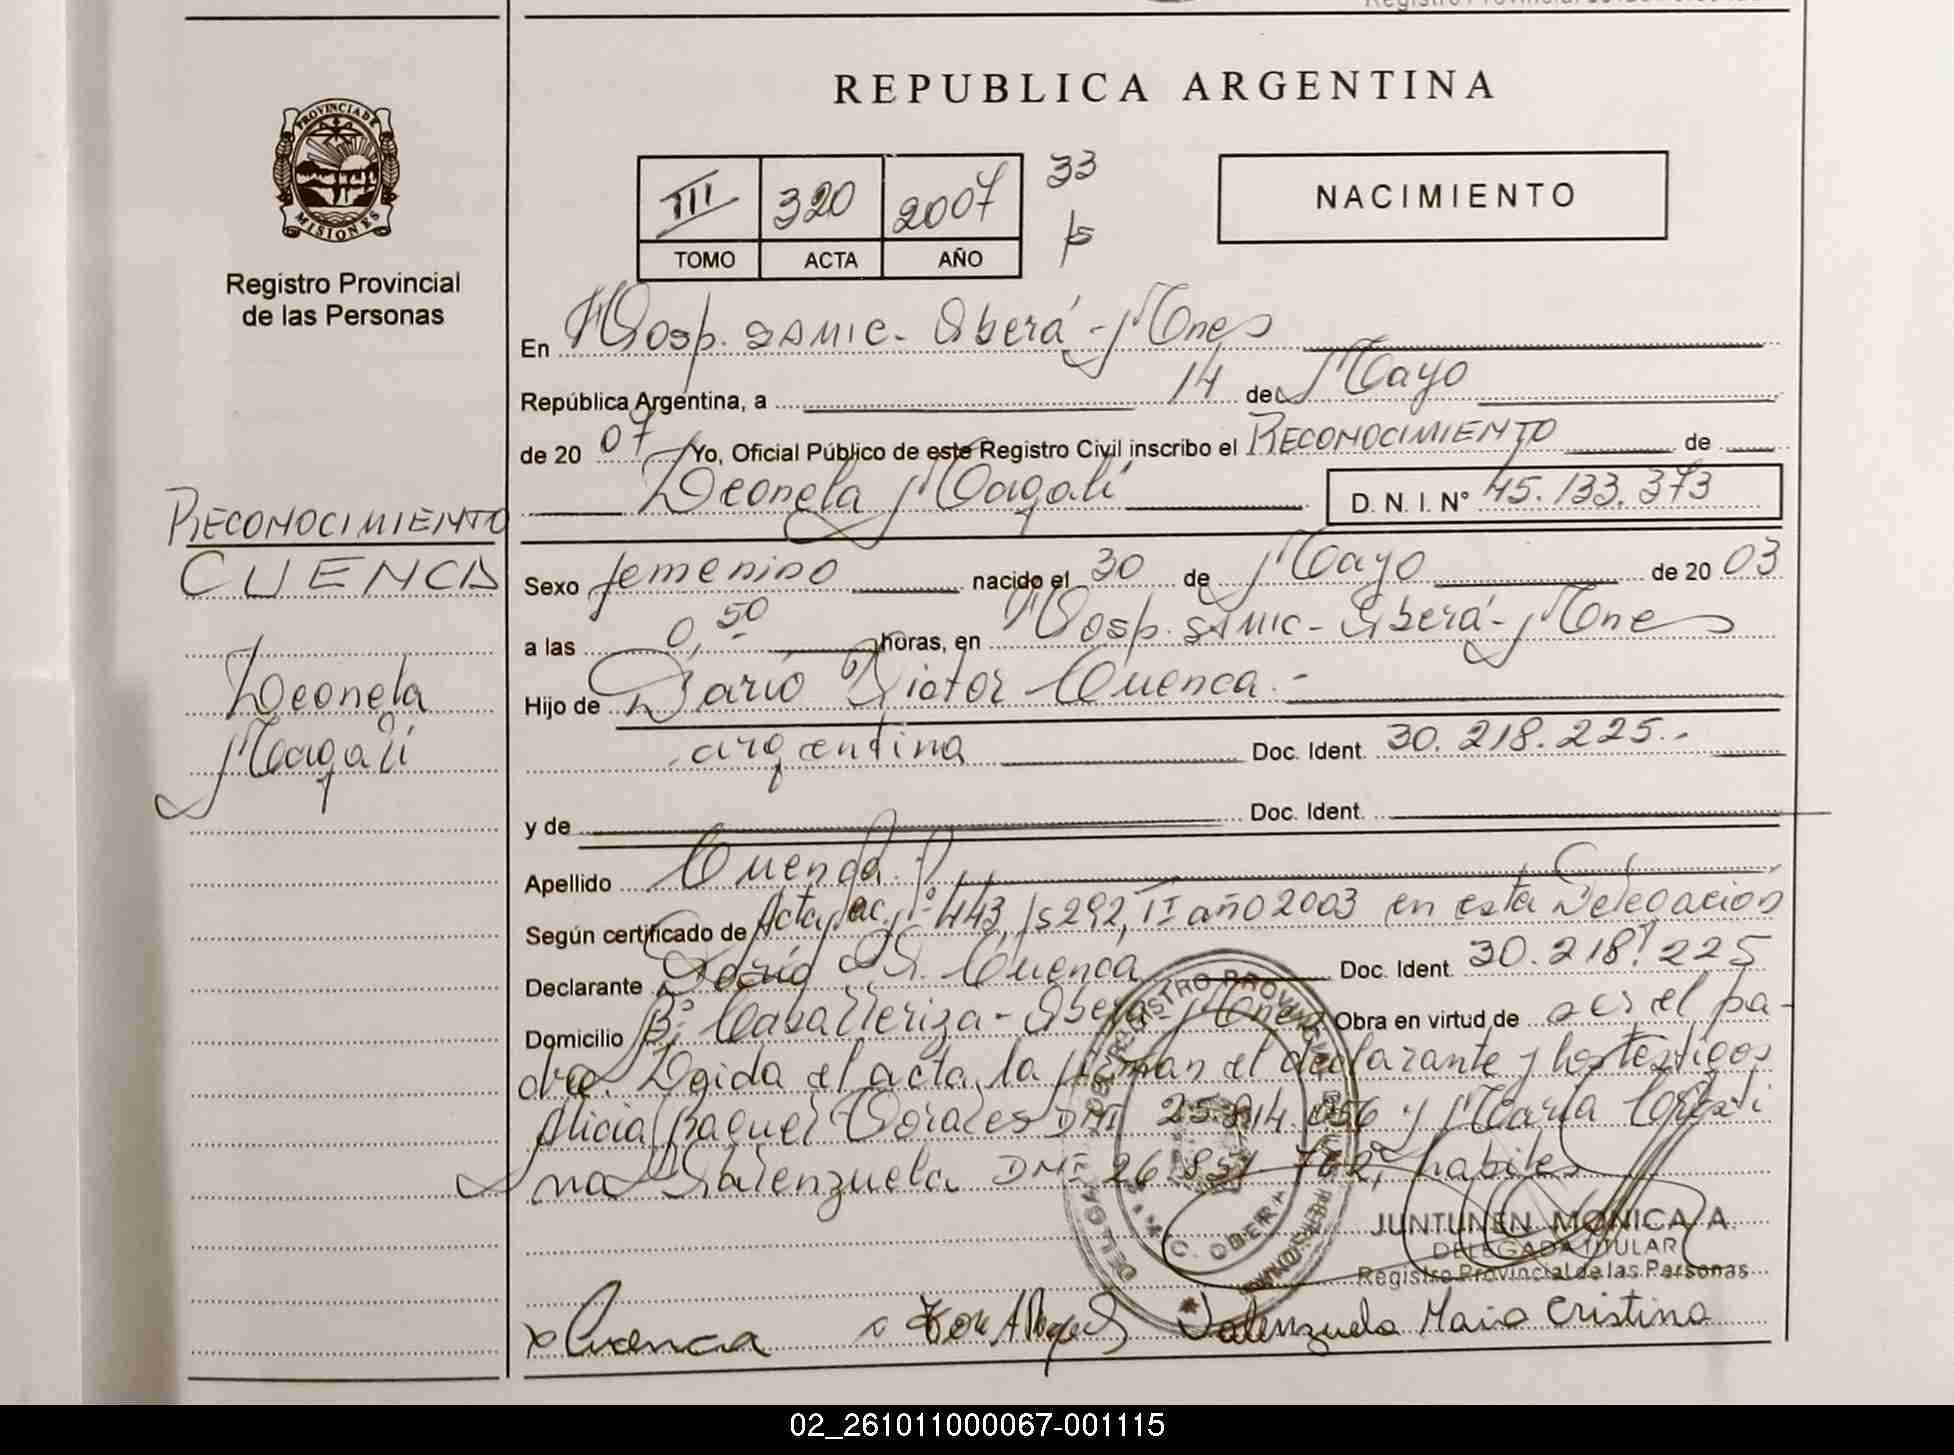 REPUBLICA ARGENTINA
PROVINCIA DE MISIONES
Registro Provincial
de las Personas
III 320 2007 33
TOMO ACTA AÑO
NACIMIENTO
En Hosp. SAMIC - Oberá - Mnes
República Argentina, a 14 de Mayo
de 20 07 Yo, Oficial Público de este Registro Civil inscribo el RECONOCIMIENTO de
Leonela Magalí D. N. I. Nº 45.133.373
RECONOCIMIENTO
CUENCA
Leonela
Magalí
Sexo femenino nacido el 30 de Mayo de 20 03
a las 0,50 horas, en Hosp. SAMIC - Oberá - Mnes
Hijo de Darío Victor Cuenca.-
argentina Doc. Ident. 30.218.225.-
y de Doc. Ident.
Apellido Cuenca
Según certificado de Acta nac. Nº 443, fs 292, TI año 2003 en esta Delegación
Declarante Darío V. Cuenca Doc. Ident. 30.218.225
Domicilio Bº Caballeriza - Oberá - Mnes Obra en virtud de ser el pa-
dre. Leida el acta, la firman el declarante y los testigos
Alicia Raquel DNI 25. 056 y María Cristi
na Valenzuela DNI 26 851 762, habiles
JUNTUNEN MONICA A.
DELEGADA TITULAR
Registro Provincial de las Personas
x Cuenca
Valenzuela Maria Cristina
02_261011000067-001115